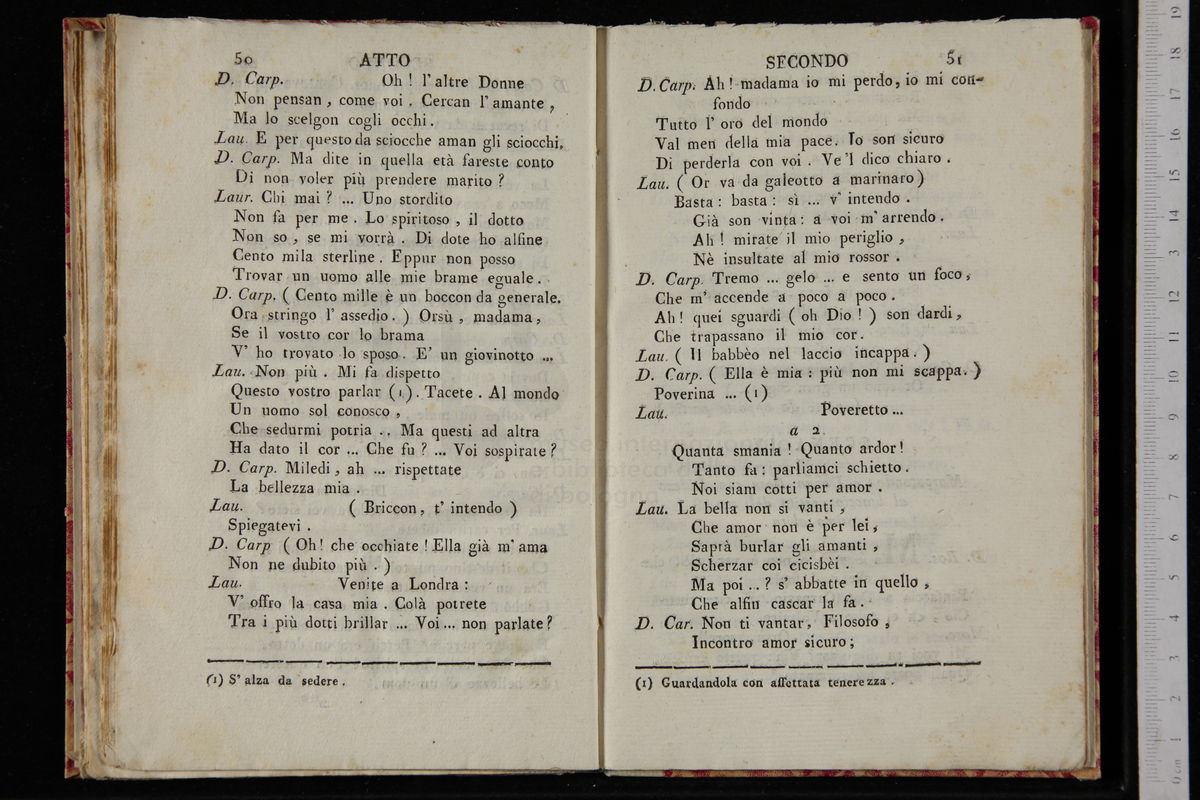 50 ATTO
D. Carp. Oh ! l' altre Donne
Non pensan , come voi . Cercan l' amante ,
Ma lo scelgon cogli occhi .
Lau. E per questo da sciocche aman gli sciocchi.
D. Carp. Ma dite in quella età fareste conto
Di non voler più prendere marito ?
Laur. Chi mai ? ... Uno stordito
Non fa per me . Lo spiritoso , il dotto
Non so , se mi vorrà . Di dote ho alfine
Cento mila sterline . Eppur non posso
Trovar un uomo alle mie brame eguale .
D. Carp. ( Cento mille è un boccon da generale.
Ora stringo l' assedio . ) Orsù , madama ,
Se il vostro cor lo brama
V' ho trovato lo sposo . E' un giovinotto ...
Lau. Non più . Mi fa dispetto
Questo vostro parlar (1) . Tacete . Al mondo
Un uomo sol conosco ,
Che sedurmi potria .. Ma questi ad altra
Ha dato il cor ... Che fu ? ... Voi sospirate ?
D. Carp. Miledi , ah ... rispettate
La bellezza mia .
Lau. ( Briccon , t' intendo )
Spiegatevi .
D. Carp ( Oh ! che occhiate ! Ella già m' ama
Non ne dubito più . )
Lau. Venite a Londra :
V' offro la casa mia . Colà potrete
Tra i più dotti brillar ... Voi ... non parlate ?
(1) S' alza da sedere .
SECONDO 51
D. Carp. Ah ! madama io mi perdo , io mi con-
fondo
Tutto l' oro del mondo
Val men della mia pace . Io son sicuro
Di perderla con voi . Ve 'l dico chiaro .
Lau. ( Or va da galeotto a marinaro )
Basta : basta : sì ... v' intendo .
Già son vinta : a voi m' arrendo .
Ah ! mirate il mio periglio ,
Nè insultate al mio rossor .
D. Carp. Tremo ... gelo ... e sento un foco ,
Che m' accende a poco a poco .
Ah ! quei sguardi ( oh Dio ! ) son dardi ,
Che trapassano il mio cor .
Lau. ( Il babbèo nel laccio incappa . )
D. Carp. ( Ella è mia : più non mi scappa . )
Poverina ... (1)
Lau. Poveretto ...
a 2.
Quanta smania ! Quanto ardor !
Tanto fa : parliamci schietto .
Noi siam cotti per amor .
Lau. La bella non si vanti ,
Che amor non è per lei ,
Saprà burlar gli amanti ,
Scherzar coi cicisbèi .
Ma poi ... ? s' abbatte in quello ,
Che alfin cascar la fa .
D. Car. Non ti vantar , Filosofo ,
Incontro amor sicuro ;
(1) Guardandola con affettata tenerezza .